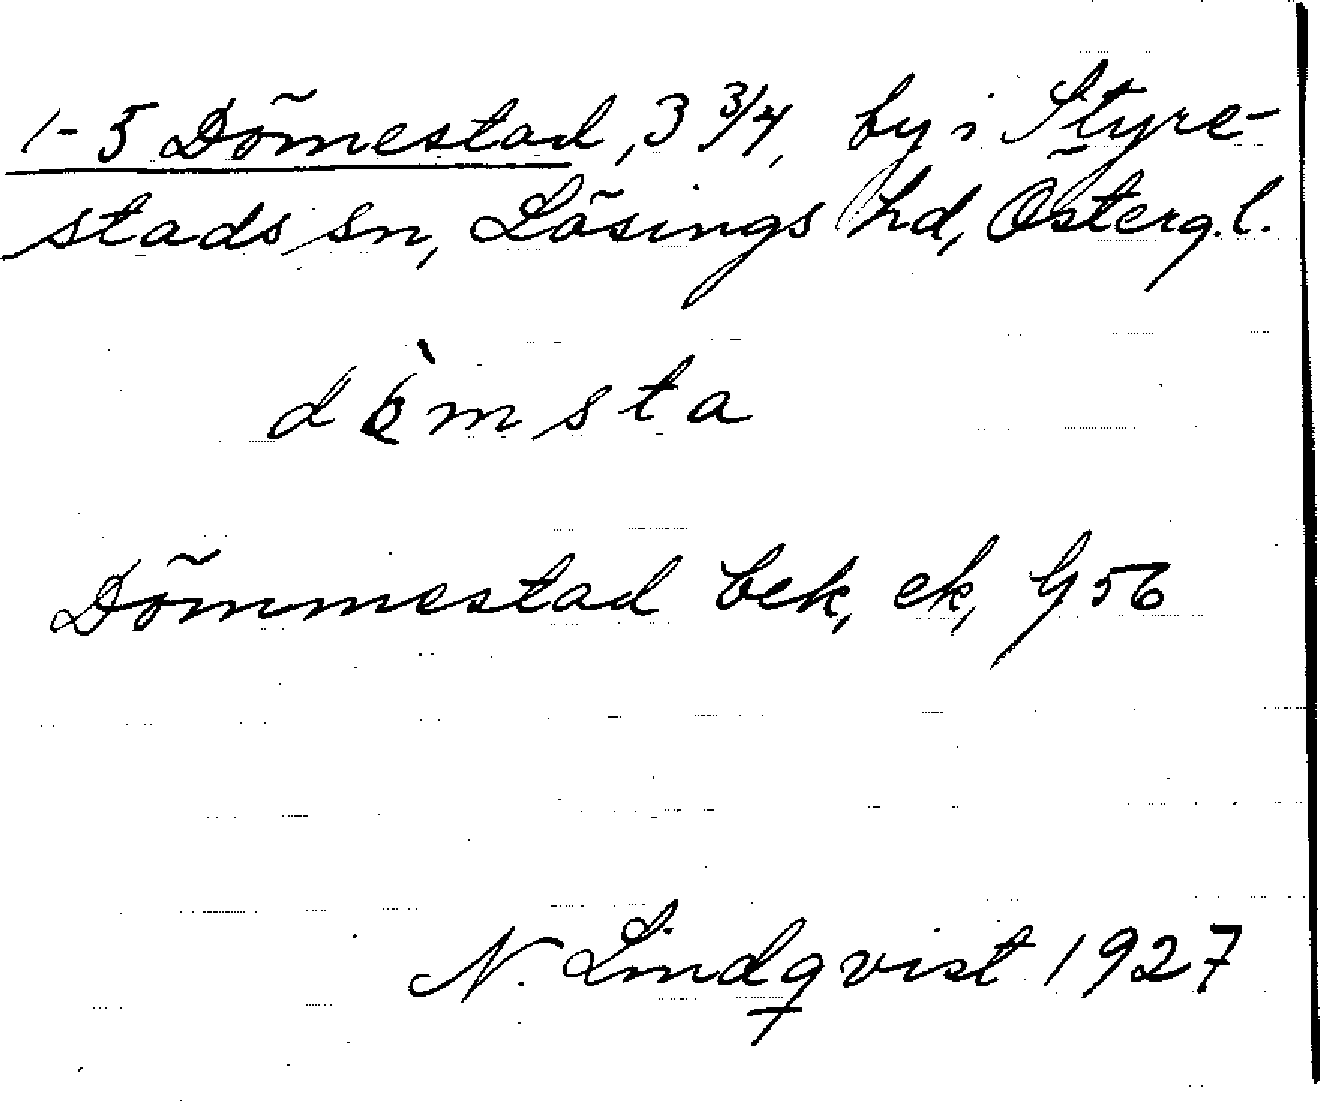 1-5 Dömestad, 3 3/4, by i Styre-
stads sn, Lösings hd, Österg.l.
msta
Dömmestad bek, ek, G 56
N. Lindqvist 1927